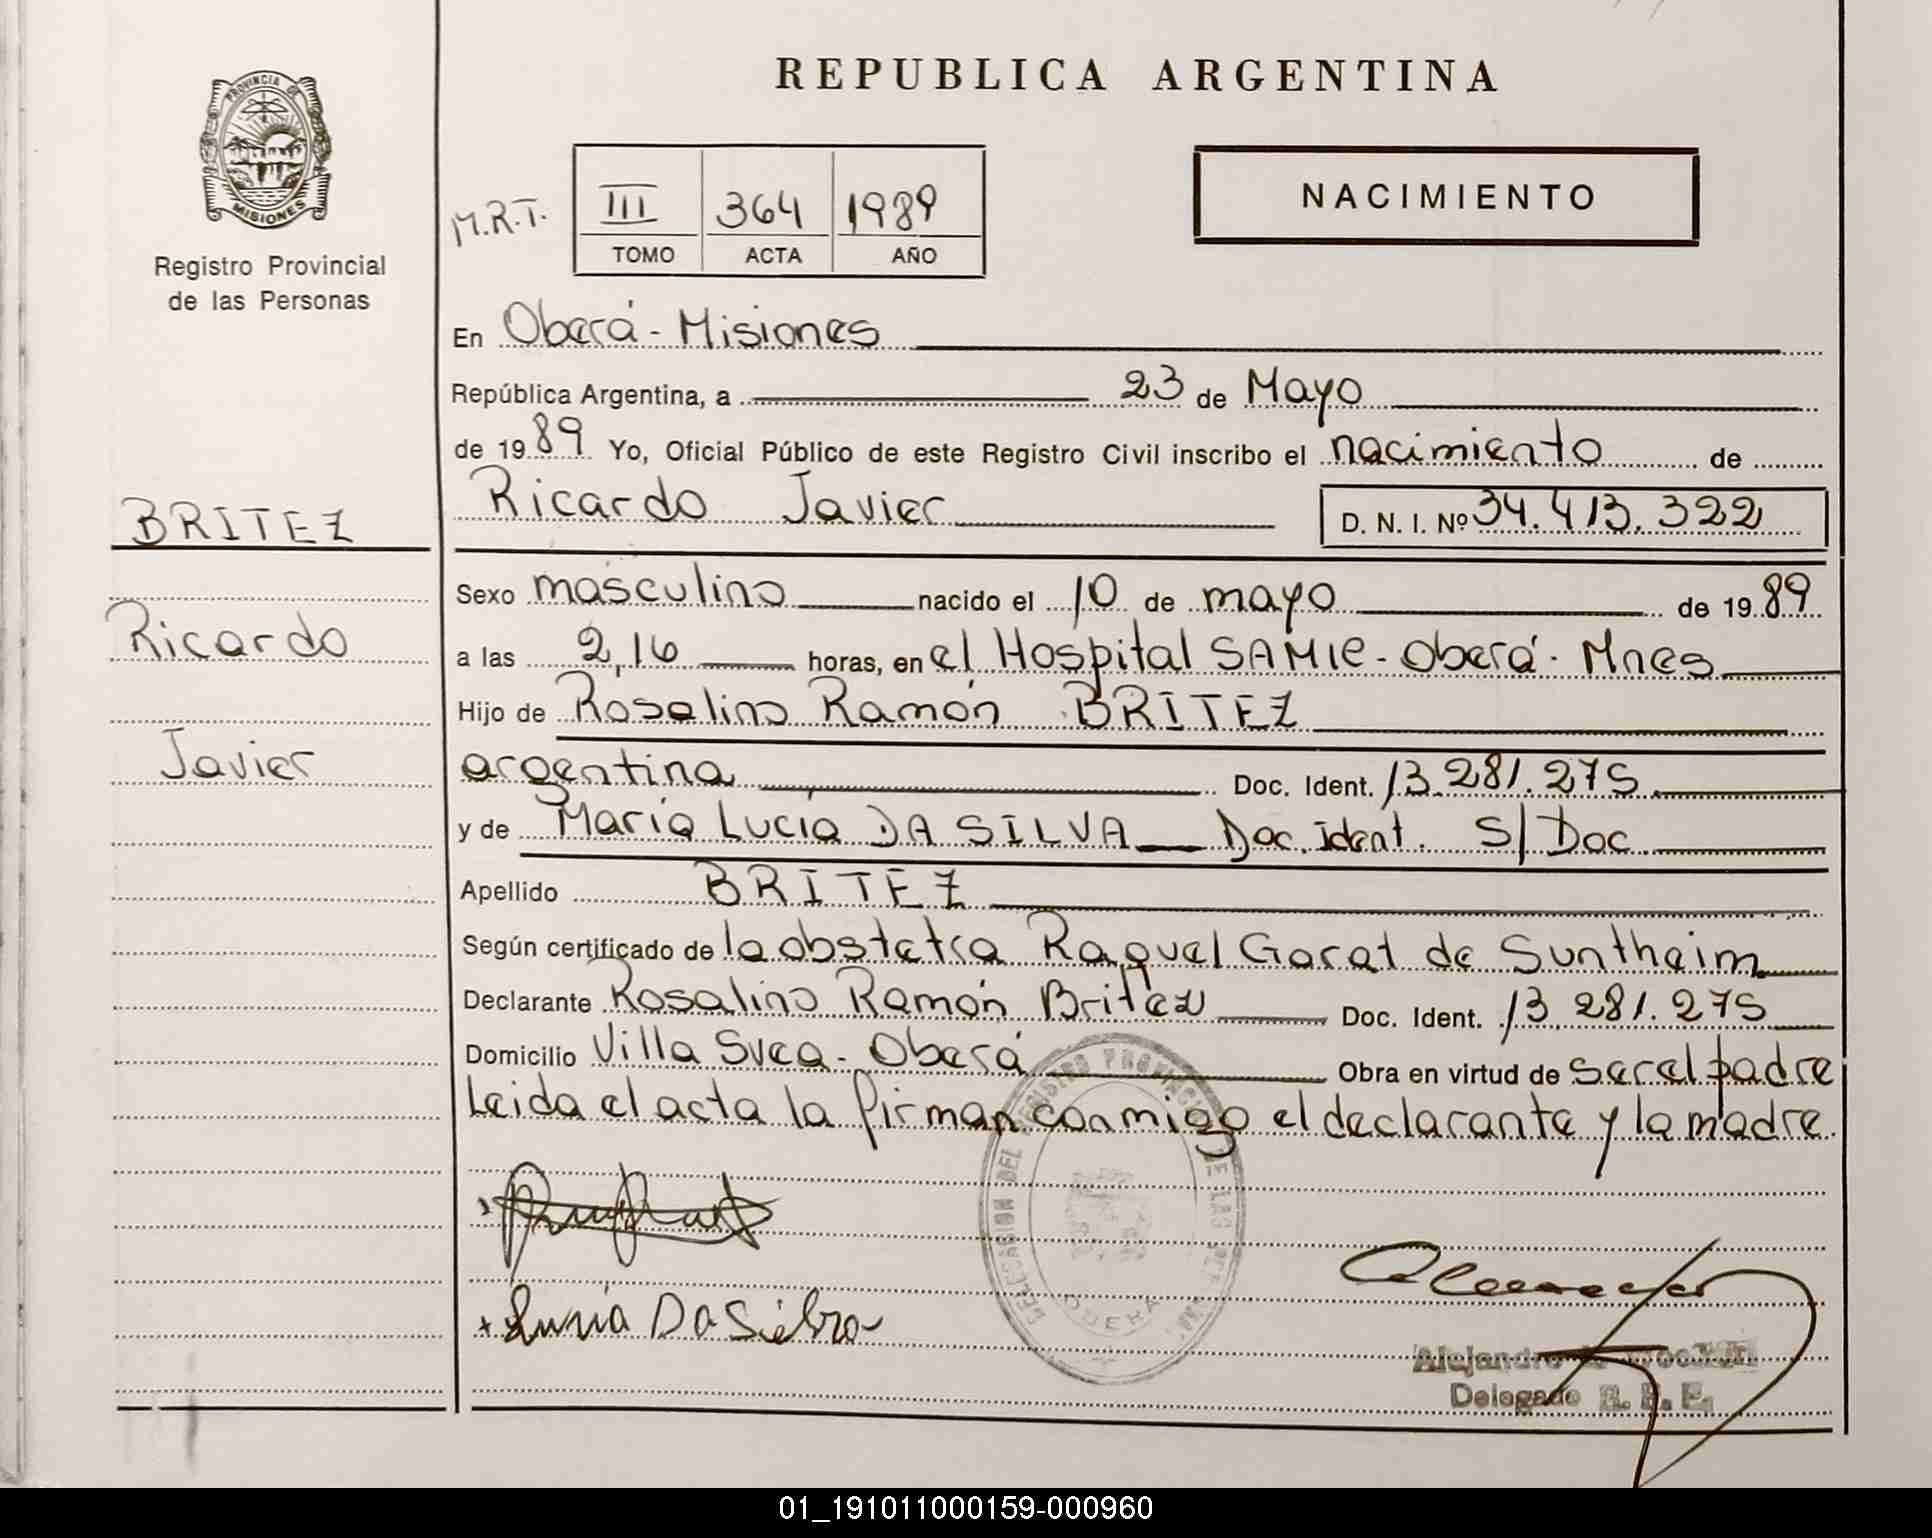 REPUBLICA ARGENTINA
PROVINCIA DE
MISIONES
Registro Provincial
de las Personas
M.R.T.
III 364 1989
TOMO ACTA AÑO
NACIMIENTO
En Oberá - Misiones
República Argentina, a 23 de Mayo
de 1989 Yo, Oficial Público de este Registro Civil inscribo el nacimiento de
Ricardo Javier D. N. I. Nº 34.413.322
BRITEZ
Ricardo
Javier
Sexo masculino nacido el 10 de mayo de 1989
a las 2,16 horas, en el Hospital SAMIC - Oberá - Mnes
Hijo de Rosalino Ramón BRITEZ
argentina Doc. Ident. 13.281.275
y de María Lucía DA SILVA Doc. ident. S/Doc
Apellido BRITEZ
Según certificado de la obstetra Raquel Garat de Suntheim
Declarante Rosalino Ramón Britez Doc. Ident. 13.281.275
Domicilio Villa Svea - Oberá Obra en virtud de ser el padre
Leida el acta la firman conmigo el declarante y la madre.
DELEGACION DEL REGISTRO PROVINCIAL DE LAS PERSONAS
OBERA
Lucia Da Silva
Alejandro
Delegado R. P. P.
01_191011000159-000960